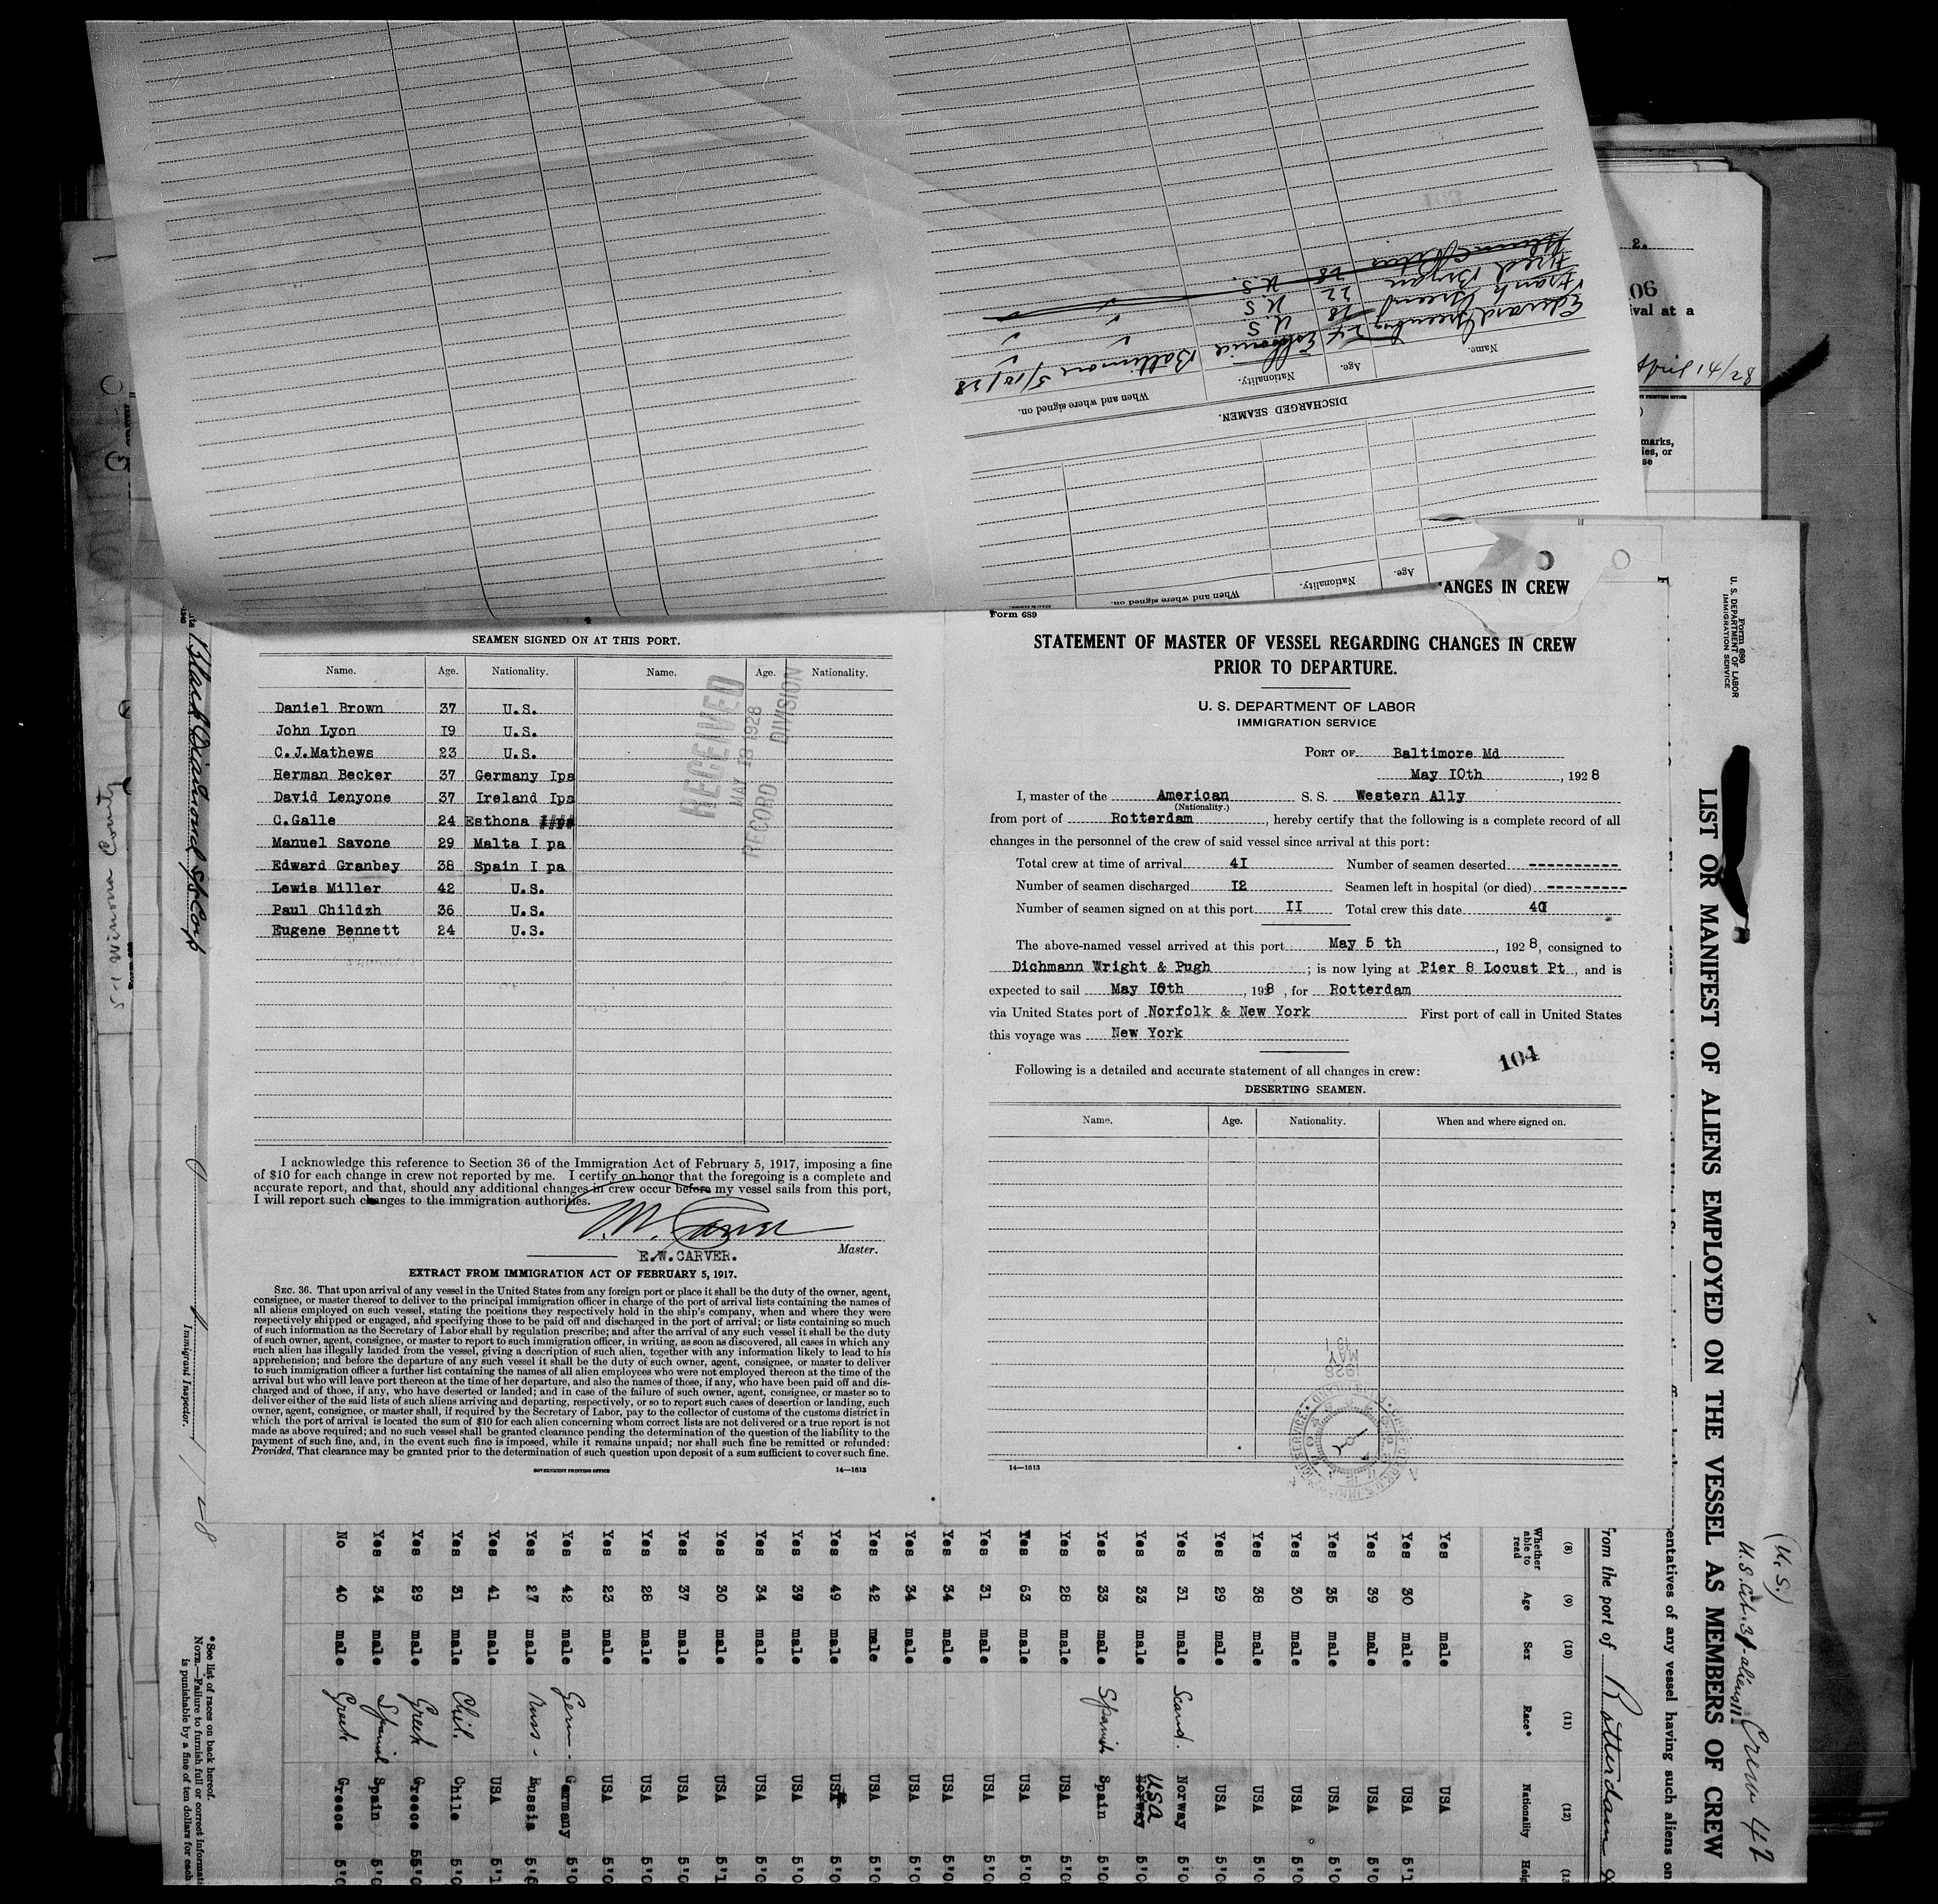 Edward Greenberg 24 Esthonia Baltimore 5/10/28
Frank Green 28 U.S
Fred Bryan 22 U.S
U.S.
Name.
Age.
Nationality.
When and where signed on.
DISCHARGED SEAMEN.
Age.
Nationality.
When and where signed on.
2.
06
ival at a
April 14/28
marks,
ies, or
se
ANGES IN CREW
SEAMEN SIGNED ON AT THIS PORT.
Name. Age. Nationality. Name. Age. Nationality.
Daniel Brown 37 U.S.
John Lyon I9 U.S.
C.J.Mathews 23 U.S.
Herman Becker 37 Germany Ips
David Lenyone 37 Ireland Ips
C.Galle 24 Esthona
Manuel Savone 29 Malta I pa
Edward Granbey 38 Spain I pa
Lewis Miller 42 U.S.
Paul Childzh 36 U.S.
Eugene Bennett 24 U.S.
RECEIVED
MAY 18 1928
RECORD DIVISION
I acknowledge this reference to Section 36 of the Immigration Act of February 5, 1917, imposing a fine
of $10 for each change in crew not reported by me. I certify on honor that the foregoing is a complete and
accurate report, and that, should any additional changes in crew occur before my vessel sails from this port,
I will report such changes to the immigration authorities.
Master.
E.W.CARVER.
EXTRACT FROM IMMIGRATION ACT OF FEBRUARY 5, 1917.
SEC. 36. That upon arrival of any vessel in the United States from any foreign port or place it shall be the duty of the owner, agent,
consignee, or master thereof to deliver to the principal immigration officer in charge of the port of arrival lists containing the names of
all aliens employed on such vessel, stating the positions they respectively hold in the ship's company, when and where they were
respectively shipped or engaged, and specifying those to be paid off and discharged in the port of arrival; or lists containing so much
of such information as the Secretary of Labor shall by regulation prescribe; and after the arrival of any such vessel it shall be the duty
of such owner, agent, consignee, or master to report to such immigration officer, in writing, as soon as discovered, all cases in which any
such alien has illegally landed from the vessel, giving a description of such alien, together with any information likely to lead to his
apprehension; and before the departure of any such vessel it shall be the duty of such owner, agent, consignee, or master to deliver
to such immigration officer a further list containing the names of all alien employees who were not employed thereon at the time of the
arrival but who will leave port thereon at the time of her departure, and also the names of those, if any, who have been paid off and dis-
charged and of those, if any, who have deserted or landed; and in case of the failure of such owner, agent, consignee, or master so to
deliver either of the said lists of such aliens arriving and departing, respectively, or so to report such cases of desertion or landing, such
owner, agent, consignee, or master shall, if required by the Secretary of Labor, pay to the collector of customs of the customs district in
which the port of arrival is located the sum of $10 for each alien concerning whom correct lists are not delivered or a true report is not
made as above required; and no such vessel shall be granted clearance pending the determination of the question of the liability to the
payment of such fine, and, in the event such fine is imposed, while it remains unpaid; nor shall such fine be remitted or refunded:
Provided, That clearance may be granted prior to the determination of such question upon deposit of a sum sufficient to cover such fine.
GOVERNMENT PRINTING OFFICE 14—1613
Form 689
STATEMENT OF MASTER OF VESSEL REGARDING CHANGES IN CREW
PRIOR TO DEPARTURE.
U. S. DEPARTMENT OF LABOR
IMMIGRATION SERVICE
PORT OF Baltimore Md
May IOth, 1928
I, master of the American S. S. Western Ally
(Nationality.)
from port of Rotterdam, hereby certify that the following is a complete record of all
changes in the personnel of the crew of said vessel since arrival at this port:
Total crew at time of arrival 4I Number of seamen deserted ----------
Number of seamen discharged I2 Seamen left in hospital (or died) ----------
Number of seamen signed on at this port II Total crew this date 40
The above-named vessel arrived at this port May 5 th, 1928, consigned to
Dichmann Wright & Pugh; is now lying at Pier 8 Locust Pt, and is
expected to sail May I0th, 1928, for Rotterdam
via United States port of Norfolk & New York First port of call in United States
this voyage was New York
104
Following is a detailed and accurate statement of all changes in crew:
DESERTING SEAMEN.
Name. Age. Nationality. When and where signed on.
MAY
1928
14—1613
Black Diamond S/S Corp
Immigrant Inspector.
Form 680
U. S. DEPARTMENT OF LABOR
IMMIGRATION SERVICE
LIST OR MANIFEST OF ALIENS EMPLOYED ON THE VESSEL AS MEMBERS OF CREW
(U.S.)
Crew 42
entatives of any vessel having such aliens on
from the port of Rotterdam
(8) (9) (10) (11) (12)
Whether able to read Age Sex Race* Nationality
Yes male USA
Yes 30 male USA
Yes 39 male USA
Yes 35 male USA
Yes 30 male USA
Yes 38 male USA
Yes 29 male USA
Yes 31 male Scand. Norway
Yes 33 male Norway USA
Yes 33 male Spanish Spain
Yes 28 male USA
Yes 63 male USA
Yes 31 male USA
Yes 34 male USA
Yes 34 male USA
Yes 42 male USA
Yes 49 male USA
Yes 39 male USA
Yes 34 male USA
Yes 30 male USA
Yes 37 male USA
Yes 28 male USA
Yes 23 male USA
Yes 42 male Germ. Germany
Yes 27 male Russ. Russia
Yes 41 male USA
Yes 31 male Chil. Chile
Yes 29 male Greek Greece
Yes 34 male Spanish Spain
No 40 male Greek Greece
*See list of races on back hereof.
NOTE.—Failure to furnish full or correct informat
is punishable by a fine of ten dollars for each